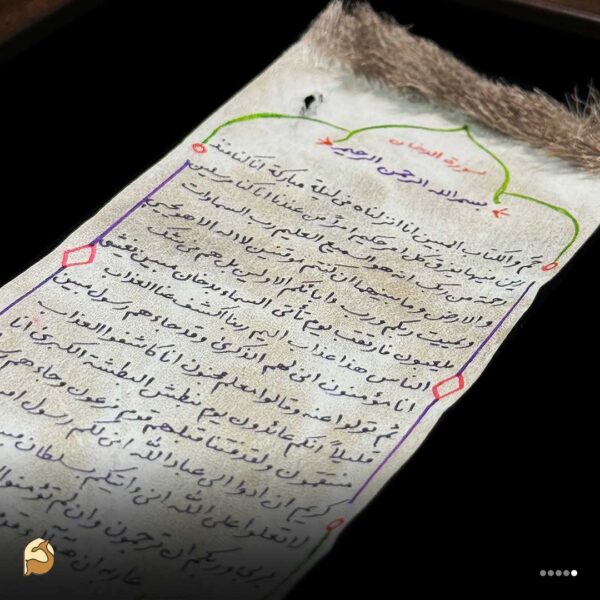 سورة الدخان
بسم الله الرحمن الرحيم
حم والكتاب المبين انا انزلناه في ليلة مباركة انا كنا منذ
رين فيها يفرق كل امر حكيم امرا من عندنا انا كنا مرسلين
رحمة من ربك انه هو السميع العليم رب السماوات
والارض وما بينهما ان كنتم موقنين لا اله الا هو يحيي
ويميت ربكم ورب ابائكم الاولين بل هم في شك
يلعبون فارتقب يوم تأتي السماء بدخان مبين يغشى
الناس هذا عذاب اليم ربنا اكشف عنا العذاب
انا مؤمنون انى لهم الذكرى وقد جاءهم رسول مبين
ثم تولوا عنه وقالوا معلم مجنون انا كاشفوا العذاب
قليلاً انكم عائدون يوم نبطش البطشة الكبرى انا
منتقمون ولقد فتنا قبلهم قوم فرعون وجاءهم
كريم ان ادوا الي عباد الله اني لكم رسول
لا تعلوا على الله اني اتيكم بسلطان
بربي وربكم ان ترجمون وان لم تؤمنوا